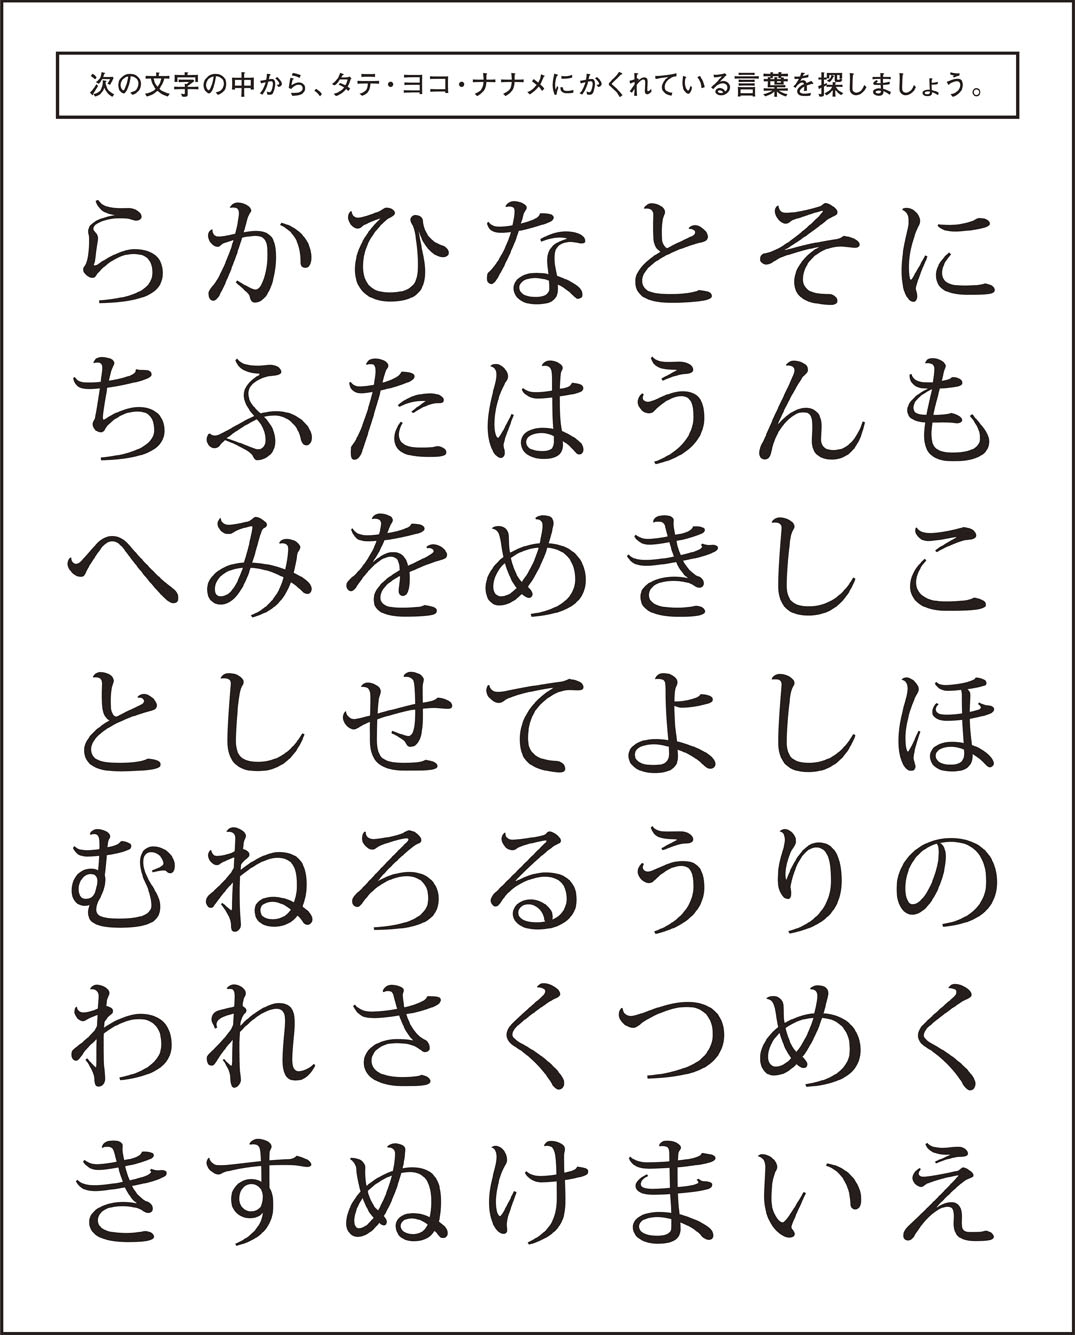 次の文字の中から、タテ・ヨコ・ナナメにかくれている言葉を探しましょう。
らかひなとそに
ちふたはうんも
へみをめきしこ
としせてよしほ
むねろるうりの
われさくつめく
きすぬけまいえ